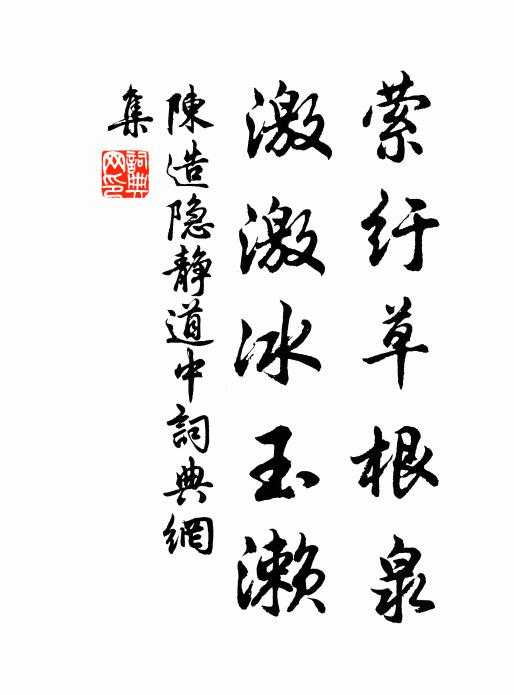 萦纡草根泉
激激冰玉濑
陳造隐静道中詞典網
集
詞典网印